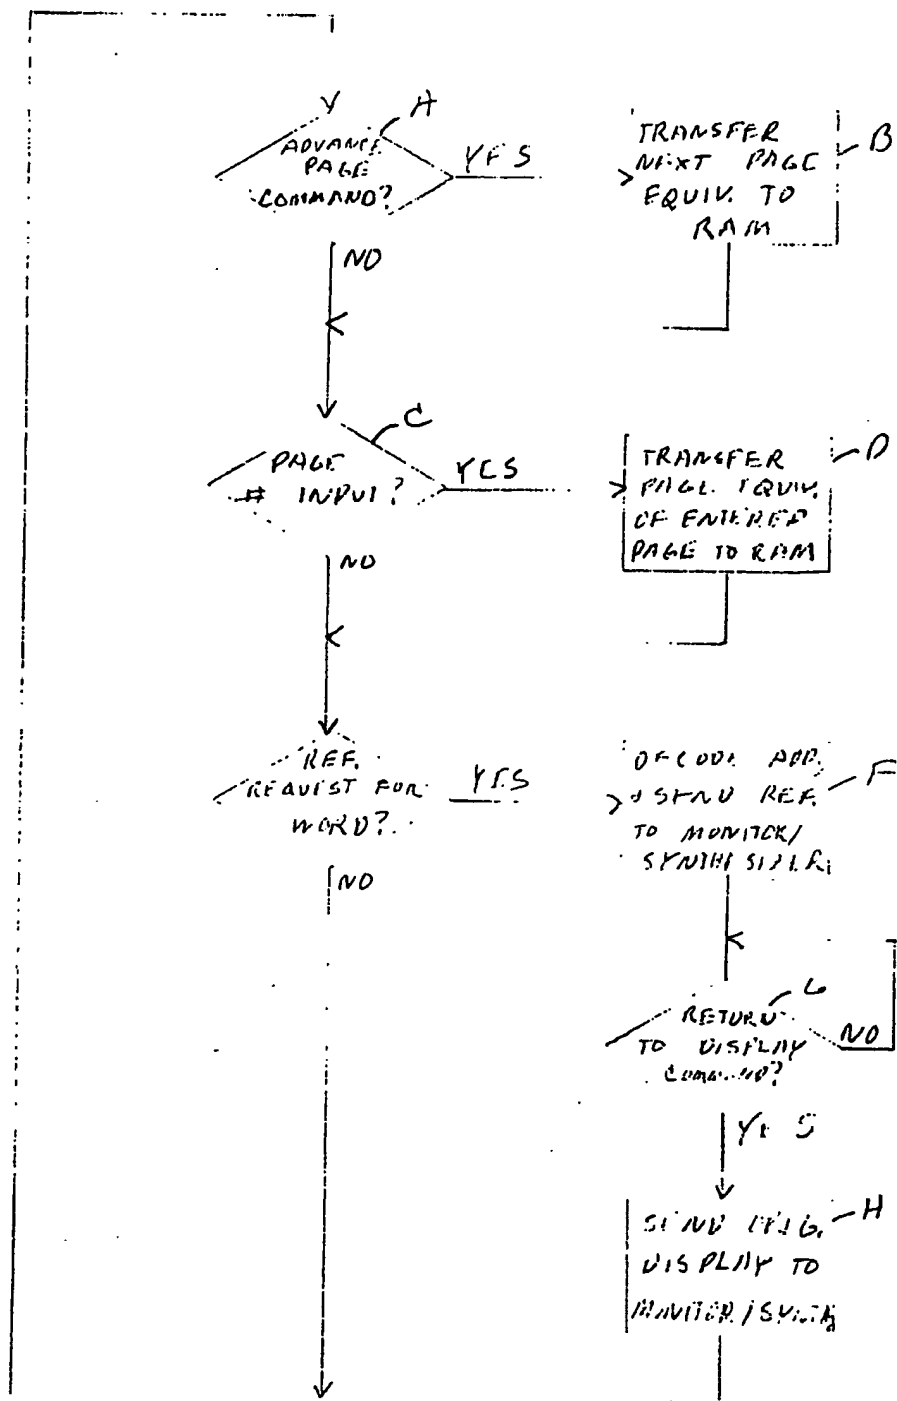 A
ADVANCE
PAGE
COMMAND?
YES
TRANSFER
NEXT PAGE
EQUIV. TO
RAM
B
NO
C
PAGE
# INPUT?
YES
TRANSFER
PAGE EQUIV.
OF ENTERED
PAGE TO RAM
D
NO
REF.
REQUEST FOR
WORD?
YES
DECODE ADD.
& SEND REF.
TO MONITOR/
SYNTHESIZER
F
NO
RETURN
TO DISPLAY
COMMAND?
G
NO
YES
SEND ORIG.
DISPLAY TO
MONITOR/SYNTH
H